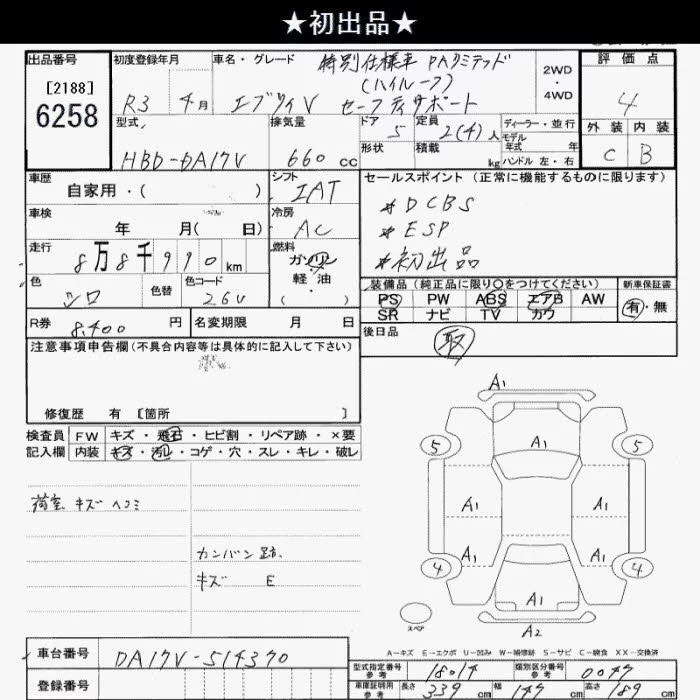 ★初出品★
出品番号
[2188]
6258
初度登録年月
R3 年 4月
車名・グレード
特別仕様車 PAリミテッド
(ハイルーフ)
エブリイV セーフティサポート
2WD
・
4WD
評価点
4
外装 内装
C B
型式
HBD-DA17V
排気量
660 cc
ドア
5
形状
定員
2(4)人
積載
kg
ディーラー・並行
モデル
年式 年
ハンドル 左・右
車歴
自家用・( )
シフト
IAT
車検
年 月( 日)
冷房
AC
走行
8万8千990km
燃料
ガソリン
軽・油
・( )
色
シロ
色替
色コード
26U
R券
8,400 円
名変期限 月 日
セールスポイント(正常に機能するものに限ります)
*DCBS
*ESP
*初出品
装備品(純正品に限り○をつけてください)
PS PW ABS エアB AW
SR ナビ TV カワ
新車保証書
有・無
後日品
取
注意事項申告欄(不具合内容等は具体的に記入して下さい)
修復歴 有 [箇所 ]
検査員
記入欄
FW キズ・飛石・ヒビ割・リペア跡・×要
内装 キズ・汚レ・コゲ・穴・スレ・キレ・破レ
荷室 キズ ヘコミ
カンバン跡、
キズ E
A1
5 A1 5
A1 A1
A1 A1
4 4
A1
スペア
A2
A-キズ E-エクボ U-凹み W-補修跡 S-サビ C-腐食 XX-交換済
車台番号
DA17V-514370
登録番号
型式指定番号
参考
18014
類別区分番号
参考
0047
車庫証明用
参考
長さ 339 cm 幅 147 cm 高さ 189 cm